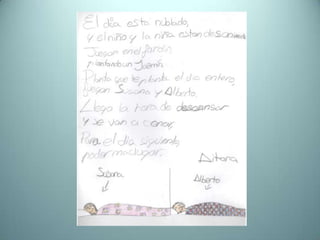 El día esta nublado,
y el niño y la niña estan descansando
Juegan en el Jardín,
plantando un Jazmín
Planta que te planta el dia entero,
juegan Susana y Alberto.
Llega la hora de descansar
y se van a cenar,
Para el día siguiente
poder madrugar.
Aitana
Susana
Alberto